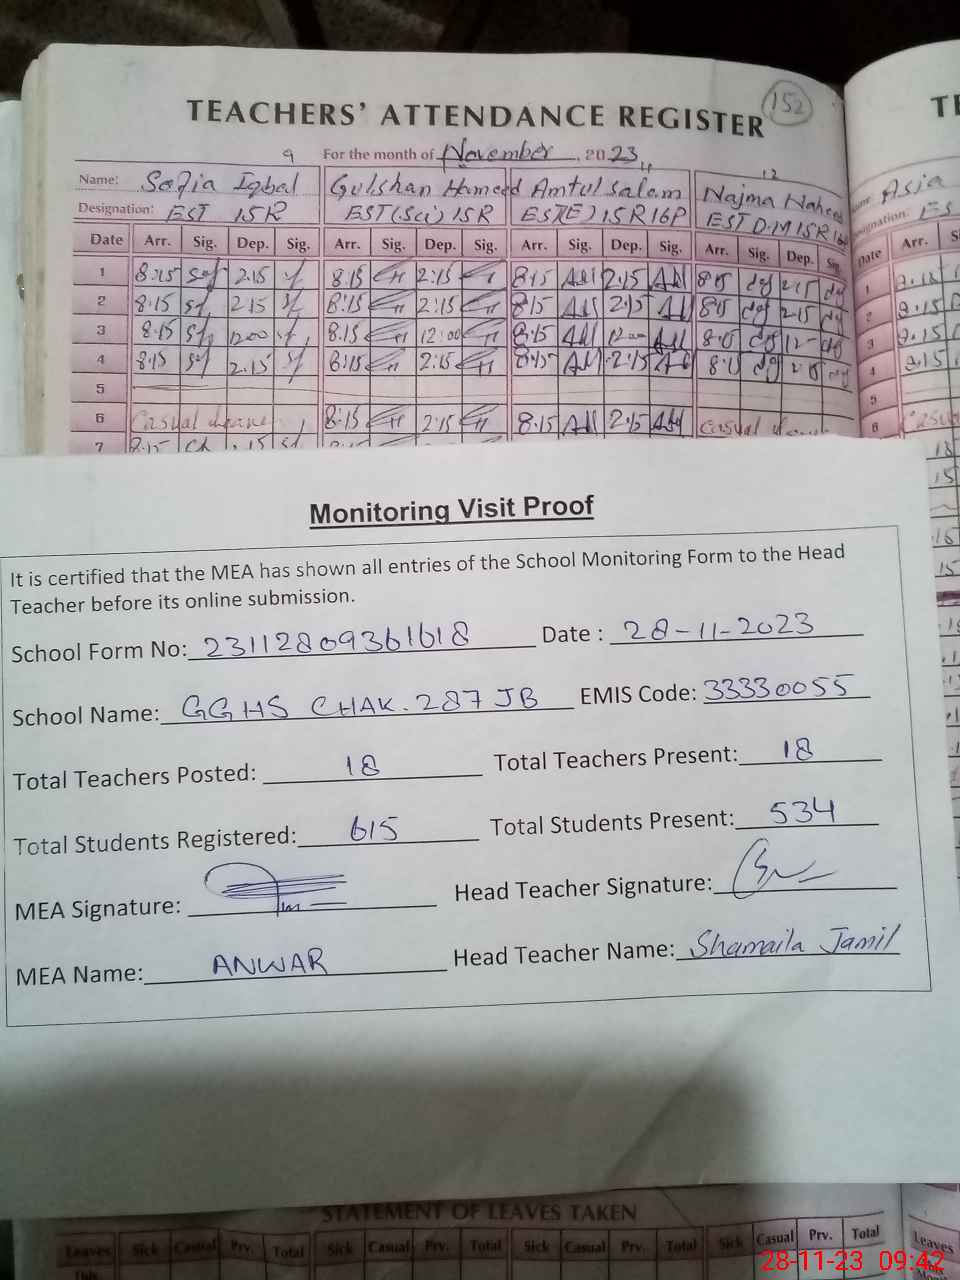 TEACHERS' ATTENDANCE REGISTER
152
9 For the month of November, 2023
Name: Safia Iqbal Gulshan Hameed Amtul Salam Najma Naheed Asia
Designation: EST 15R EST(Sci) 15R EST(E) 15R16P EST D.M 15R
Date Arr. Sig. Dep. Sig. Arr. Sig. Dep. Sig. Arr. Sig. Dep. Sig. Arr. Sig. Dep. Sig. Date Arr.
1 8:15 2:15 8:15 2:15 8:15 2:15 8:15 2:15 1
2 8:15 2:15 8:15 2:15 8:15 2:15 8:15 2:15 2
3 8:15 12:00 8:15 12:00 8:15 12:00 8:15 3
4 8:15 2:15 8:15 2:15 8:15 2:15 4
5 5
6 Casual Leave 8:15 2:15 8:15 2:15 Casual 6
7 8:15
Monitoring Visit Proof
It is certified that the MEA has shown all entries of the School Monitoring Form to the Head
Teacher before its online submission.
School Form No: 23112809361618 Date : 28-11-2023
School Name: GGHS CHAK. 287 JB EMIS Code: 33330055
Total Teachers Posted: 18 Total Teachers Present: 18
Total Students Registered: 615 Total Students Present: 534
MEA Signature: Head Teacher Signature:
MEA Name: ANWAR Head Teacher Name: Shamaila Jamil
STATEMENT OF LEAVES TAKEN
Leaves Sick Casual Prv. Total Sick Casual Prv. Total Sick Casual Prv. Total Sick Casual Prv. Total Leaves
28-11-23 09:42